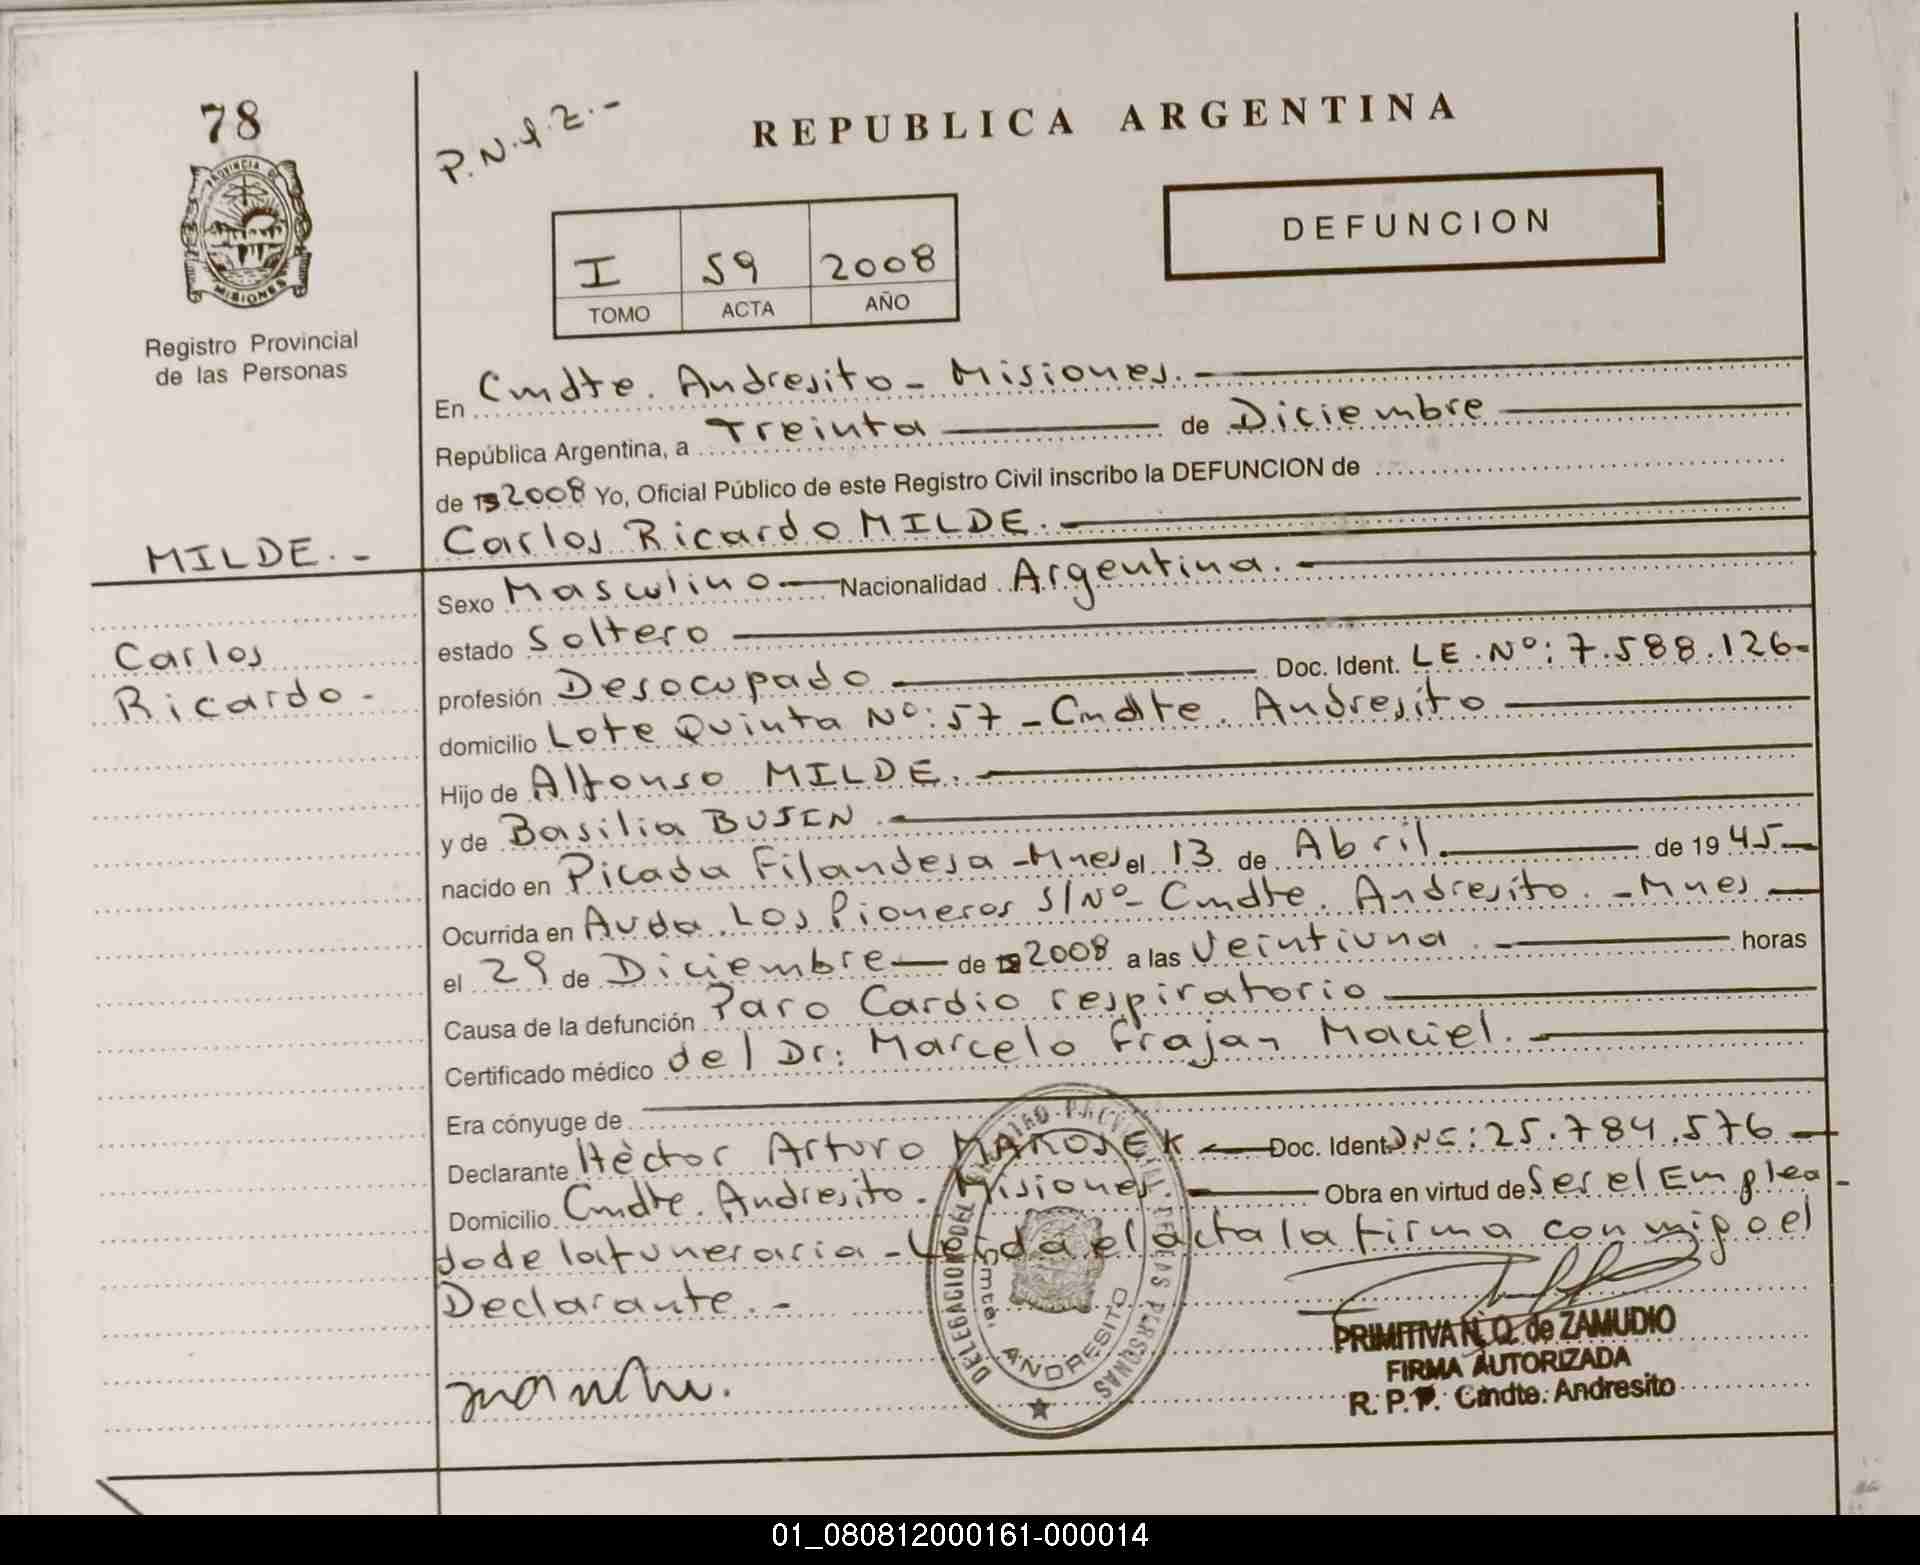 78
P.N.I.Z.-
REPUBLICA ARGENTINA
DEFUNCION
I 59 2008
TOMO ACTA AÑO
PROVINCIA DE
MISIONES
Registro Provincial
de las Personas
En Cmdte. Andresito - Misiones.
República Argentina, a Treinta de Diciembre
de 2008 Yo, Oficial Público de este Registro Civil inscribo la DEFUNCION de
MILDE.- Carlos Ricardo MILDE.-
Sexo Masculino Nacionalidad Argentina.
Carlos
Ricardo-
estado Soltero
profesión Desocupado Doc. Ident. LE.Nº:7.588.126-
domicilio Lote Quinta Nº:57-Cmdte. Andresito
Hijo de Alfonso MILDE.
y de Basilia BUSEN.
nacido en Picada Filandesa-Mnes el 13 de Abril. de 1945
Ocurrida en Avda. Los Pioneros S/Nº- Cmdte. Andresito.-Mnes
el 29 de Diciembre de 2008 a las Veintiuna. horas
Causa de la defunción Paro Cardio respiratorio
Certificado médico del Dr: Marcelo Maciel.
Era cónyuge de
Declarante Hèctor Arturo MAROSEK Doc. Ident. DNI:25.784.576
Domicilio Cmdte. Andresito. Misiones. Obra en virtud de Ser el Emplea-
do de la funeraria-Leida el acta la firma conmigo el
Declarante.-
DELEGACION DEL REGISTRO PROVINCIAL DE LAS PERSONAS
Cmte. ANDRESITO
PRIMITIVA N. Q. de ZAMUDIO
FIRMA AUTORIZADA
R. P. P. Cmdte. Andresito
01_080812000161-000014